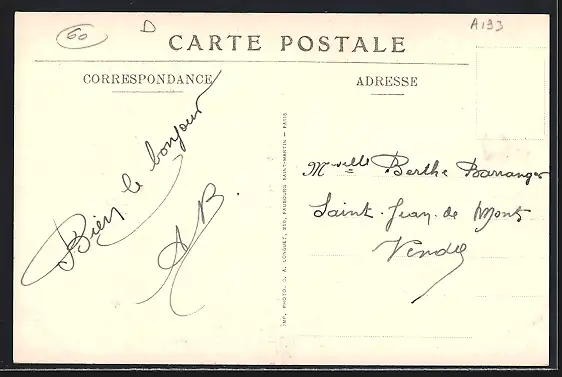 60
D
A193
CARTE POSTALE
CORRESPONDANCE
ADRESSE
Bien le bonjour
AB.
IMP. PHOTO. D. A. LONGUET, 250, FAUBOURG SAINT-MARTIN - PARIS
Mselle Berthe Barranger
Saint. Jean. de Monts
Vendée